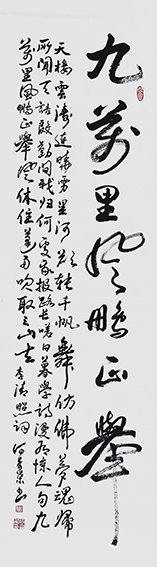 九萬里風鵬正舉
天接雲濤連曉霧星河欲轉千帆舞仿佛夢魂歸
所聞天語殷勤問我歸何處我報路長嗟日暮學詩漫有驚人句九
萬里風鵬正舉風休住蓬舟吹取三山去 李清照詞